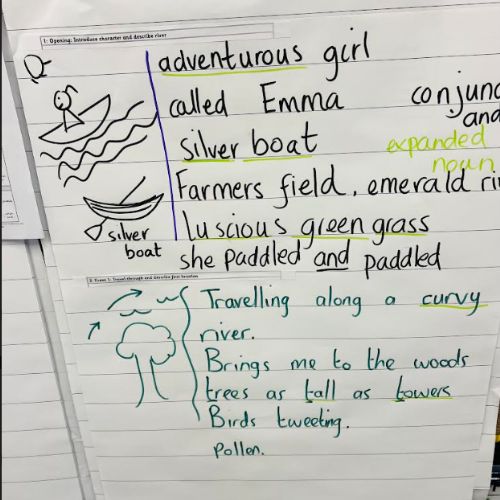 1: Opening: Introduce character and describe river
adventurous girl
called Emma
conjunc
and
silver boat
expanded
noun
Farmers field, emerald ri
silver
boat
luscious green grass
she paddled and paddled
2: Event 1: Travel through and describe first location
Travelling along a curvy
river.
Brings me to the woods
trees as tall as towers
Birds tweeting.
Pollen.